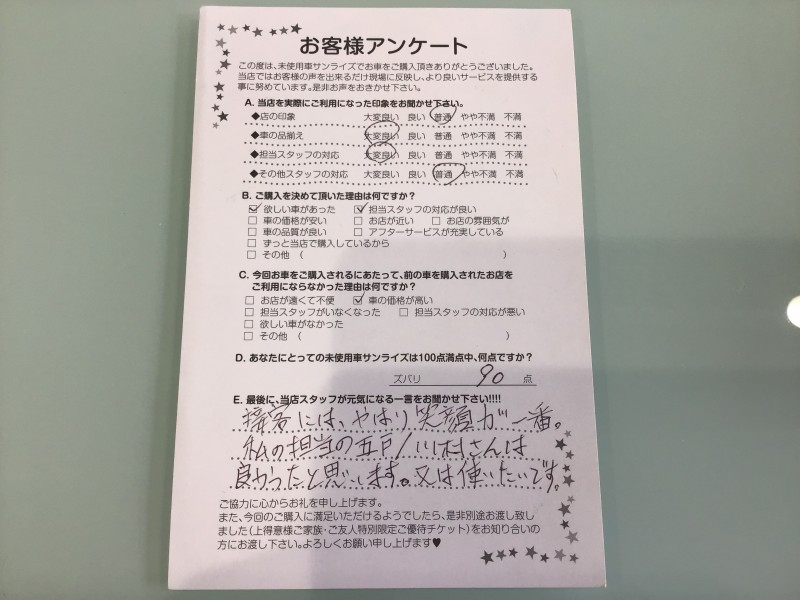 お客様アンケート
この度は、未使用車サンライズでお車をご購入頂きありがとうございました。
当店ではお客様の声を出来るだけ現場に反映し、より良いサービスを提供する
事に努めています。是非お声をおきかせ下さい。
A. 当店を実際にご利用になった印象をお聞かせ下さい。
◆店の印象 大変良い 良い 普通 やや不満 不満
◆車の品揃え 大変良い 良い 普通 やや不満 不満
◆担当スタッフの対応 大変良い 良い 普通 やや不満 不満
◆その他スタッフの対応 大変良い 良い 普通 やや不満 不満
B. ご購入を決めて頂いた理由は何ですか?
☑ 欲しい車があった ☑ 担当スタッフの対応が良い
□ 車の価格が安い □ お店が近い □ お店の雰囲気が
□ 車の品質が良い □ アフターサービスが充実している
□ ずっと当店で購入しているから
□ その他 ( )
C. 今回お車をご購入されるにあたって、前の車を購入されたお店を
ご利用にならなかった理由は何ですか?
□ お店が遠くて不便 ☑ 車の価格が高い
□ 担当スタッフがいなくなった □ 担当スタッフの対応が悪い
□ 欲しい車がなかった
□ その他 ( )
D. あなたにとっての未使用車サンライズは100点満点中、何点ですか?
ズバリ 90 点
E. 最後に、当店スタッフが元気になる一言をお聞かせ下さい!!!!
接客には、やはり笑顔が一番。
私の担当の五戸/川村さんは
良かったと思います。又は使いたいです。
ご協力に心からお礼を申し上げます。
また、今回のご購入に満足いただけるようでしたら、是非別途お渡し致し
ました(上得意様ご家族・ご友人特別限定ご優待チケット)をお知り合いの
方にお渡し下さい。よろしくお願い申し上げます♥